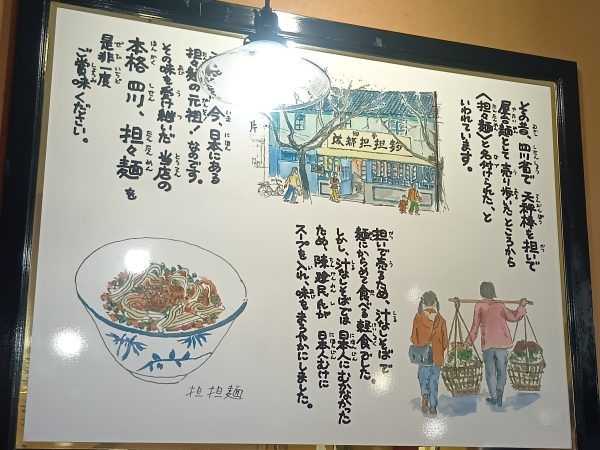 その昔、四川省で 天秤棒を担いで
屋台麺として 売り歩いたところから
〈担々麺〉と 名付けられた、と
いわれています。
担いで売るため、汁なしそばで
麺にからめて食べる軽食でした。
しかし、汁なしそばでは 日本人にむかなかった
ため、陳建民氏が 日本人むけに
スープを入れ、味をまろやかにしました。
今、日本にある
担々麺の元祖!なのです。
その味を受け継いだ 当店の
本格四川、担々麺を
是非一度
ご賞味ください。
担担麺